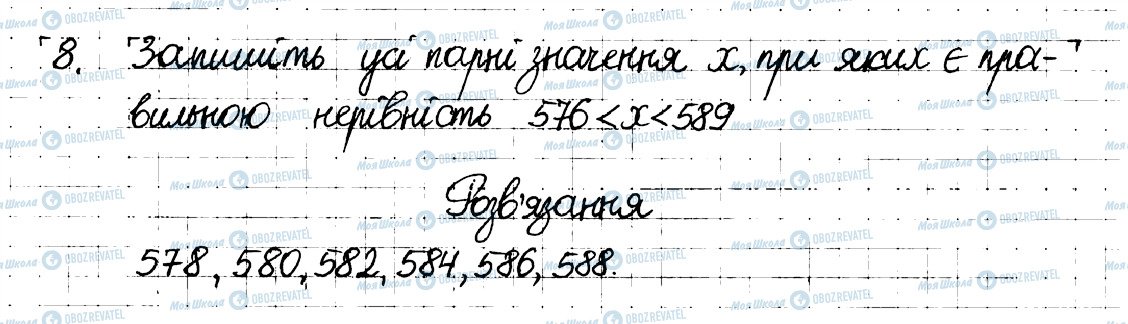 8. Запишіть усі парні значення x, при яких є пра-
вильною нерівність 576 < x < 589
Розв'язання
578, 580, 582, 584, 586, 588.